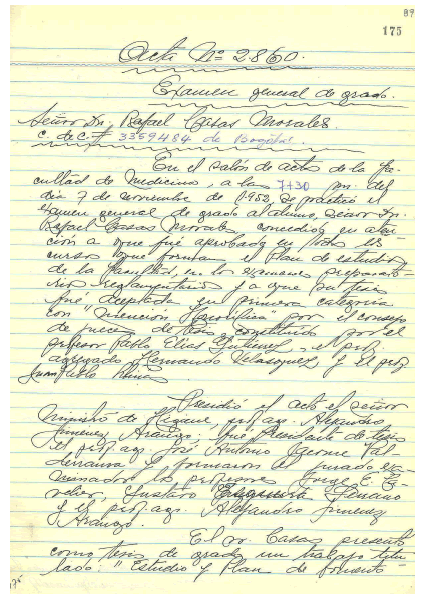 89
175
Acta Nº 2860.
Examen general de grado.
Señor Dn. Rafael Casas Morales.
C. de C. # 3359484 de Bogotá.
En el salón de actos de la Fa-
cultad de Medicina, a las 7+30 pm. del
día 7 de noviembre de 1952, se practicó el
examen general de grado al alumno, señor Dn.
Rafael Casas Morales, concedido en aten-
ción a que fué aprobado en todos los
cursos que forman el Plan de estudios
de la Facultad, en los exámenes preparato-
rios reglamentarios y a que su tesis
fué aceptada en primera categoría
con "Mención Honorífica" por el consejo
de jueces de tesis constituído por el
profesor Pablo Elías Gutiérrez, el prof.
agregado Hernando Velásquez y el prof.
Juan Pablo
Presidió el acto el señor
Ministro de Higiene, prof. ag. Alejandro
Jiménez Arango, fué Presidente de tesis
el prof. ag. José Antonio Jácome Val-
derrama y formaron el jurado exa-
minador los profesores Jorge E.
Gustavo Serrano
y el prof. ag. Alejandro Jiménez
Arango.
El Dr. Casas presentó
como tesis de grado un trabajo titu-
lado: "Estudio y Plan de fomento
175